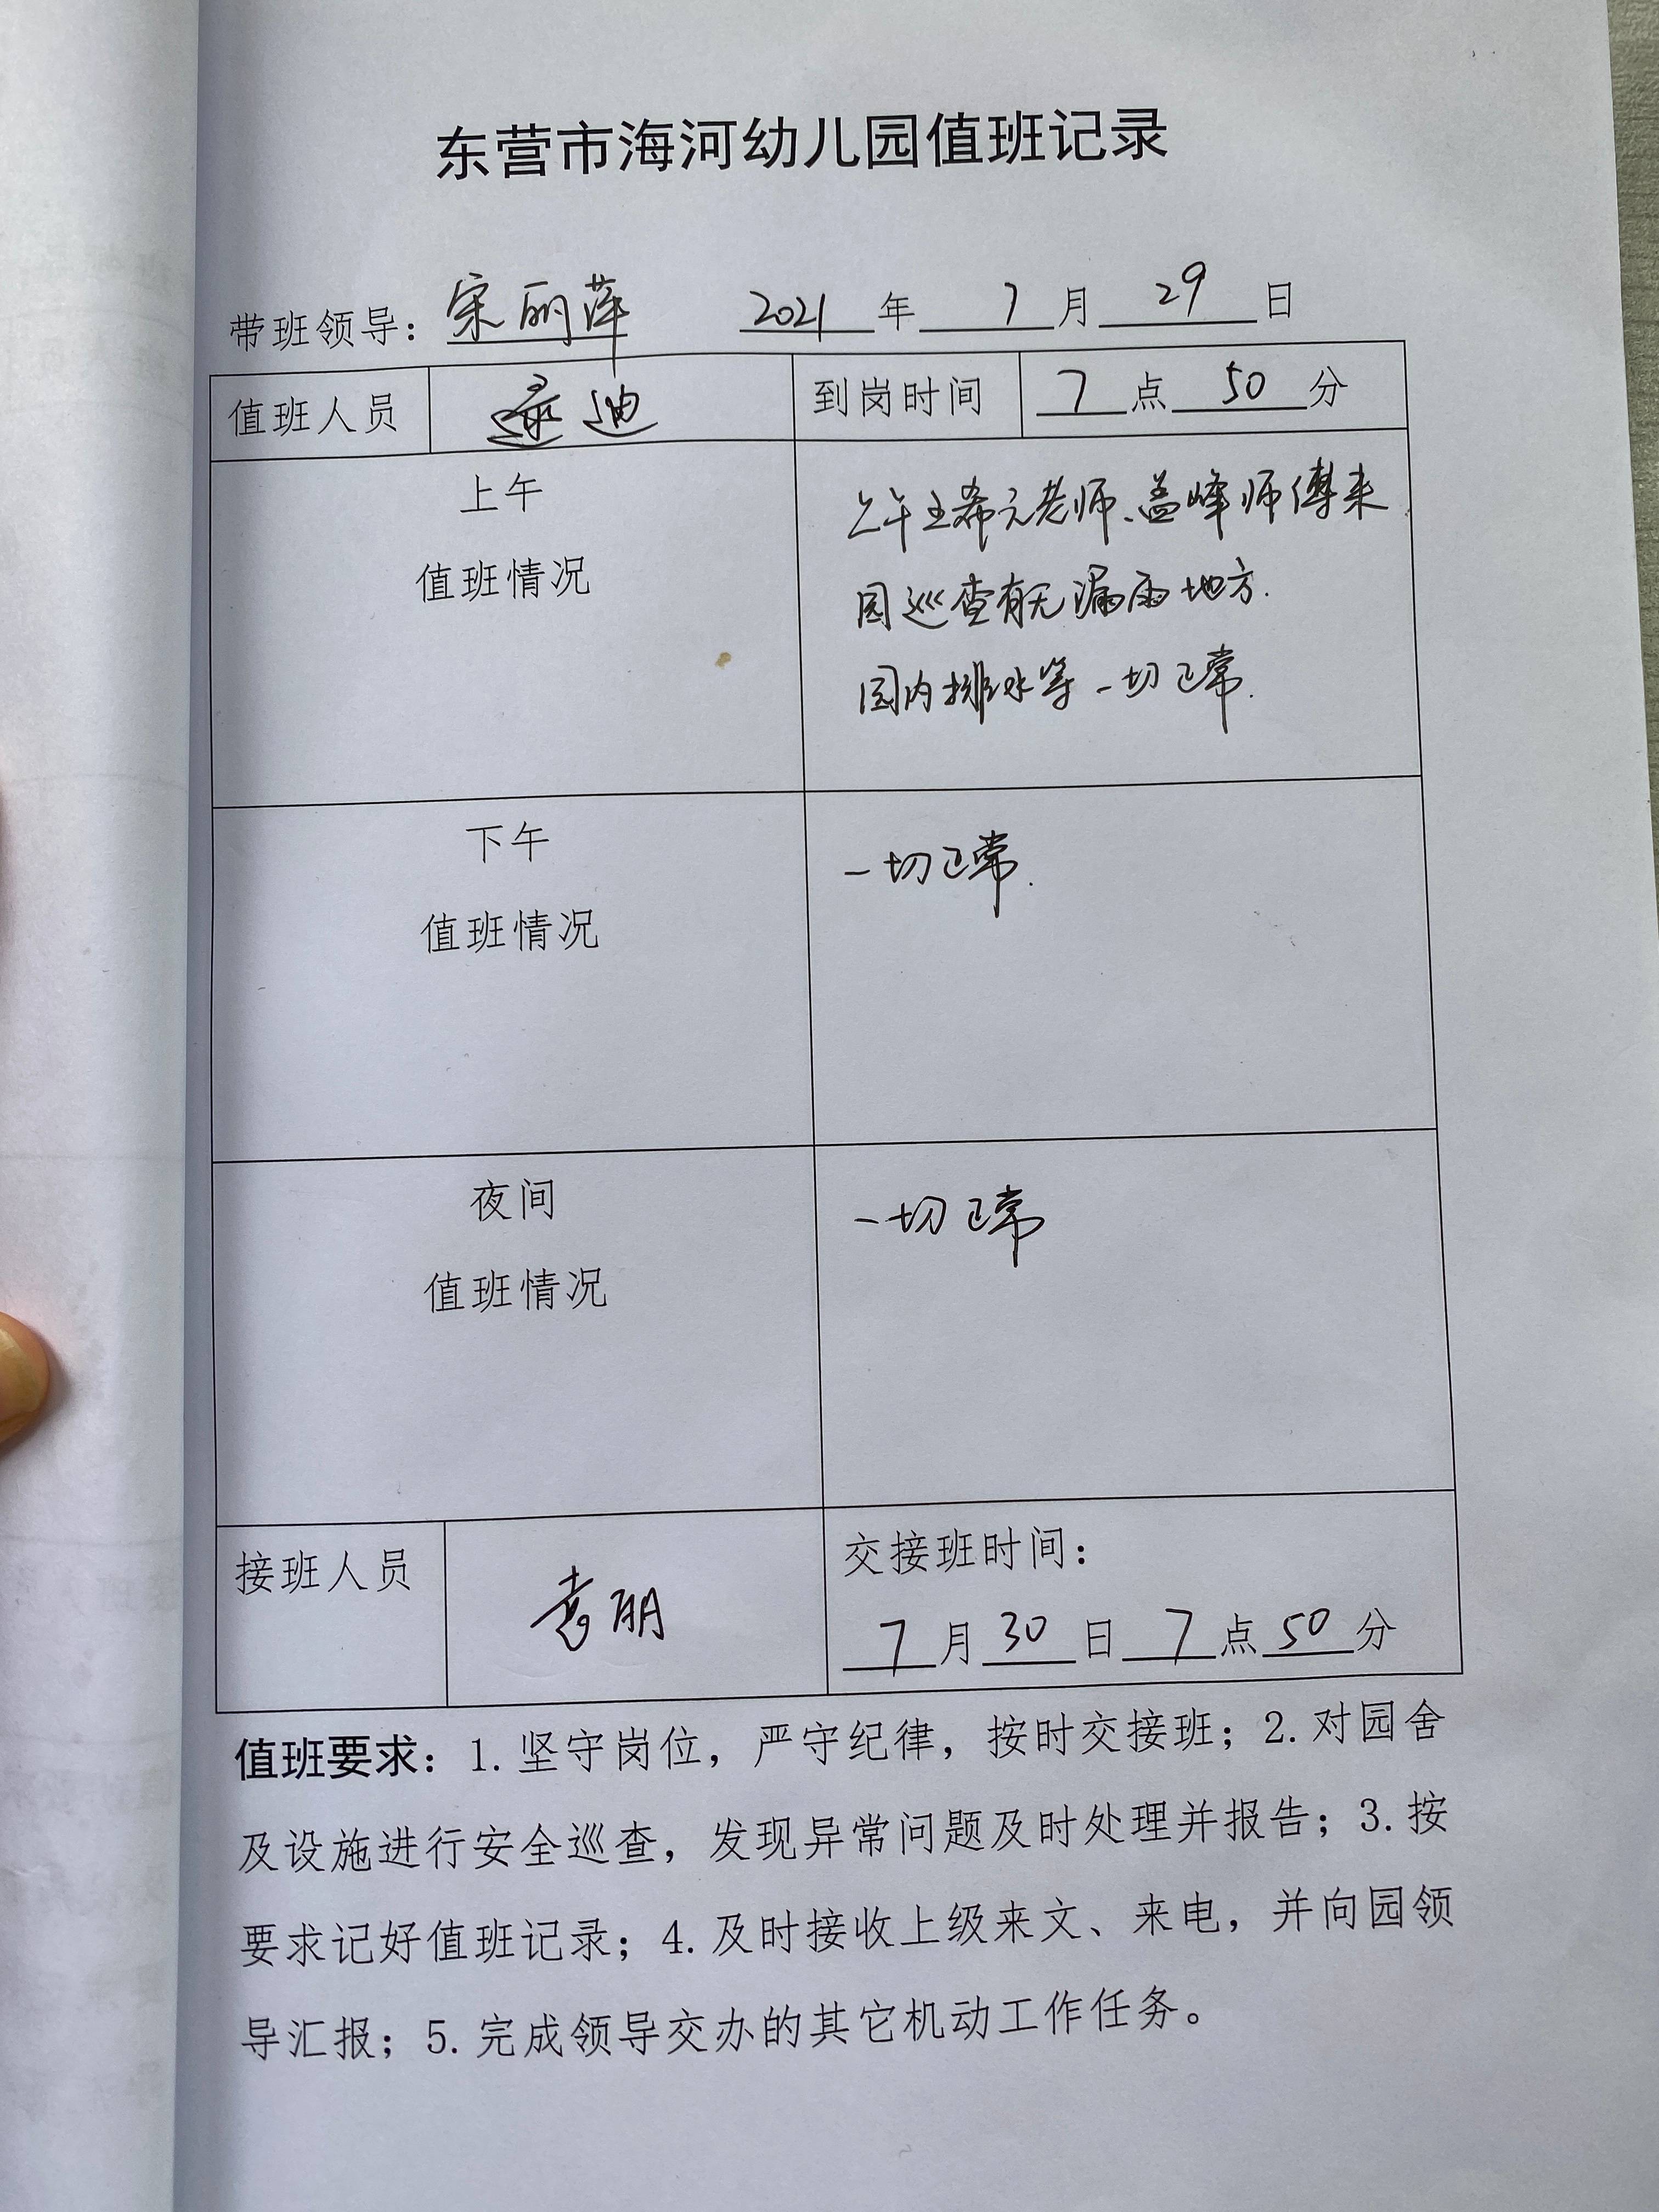 东营市海河幼儿园值班记录
带班领导：宋丽萍 2021年7月29日
值班人员 迪 到岗时间 7点50分
上午
值班情况
上午王希元老师、盖峰师傅来
园巡查有无漏雨地方.
园内排水等一切正常.
下午
值班情况
一切正常.
夜间
值班情况
一切正常
接班人员 袁丽
交接班时间：
7月30日7点50分
值班要求：1.坚守岗位，严守纪律，按时交接班；2.对园舍
及设施进行安全巡查，发现异常问题及时处理并报告；3.按
要求记好值班记录；4.及时接收上级来文、来电，并向园领
导汇报；5.完成领导交办的其它机动工作任务。